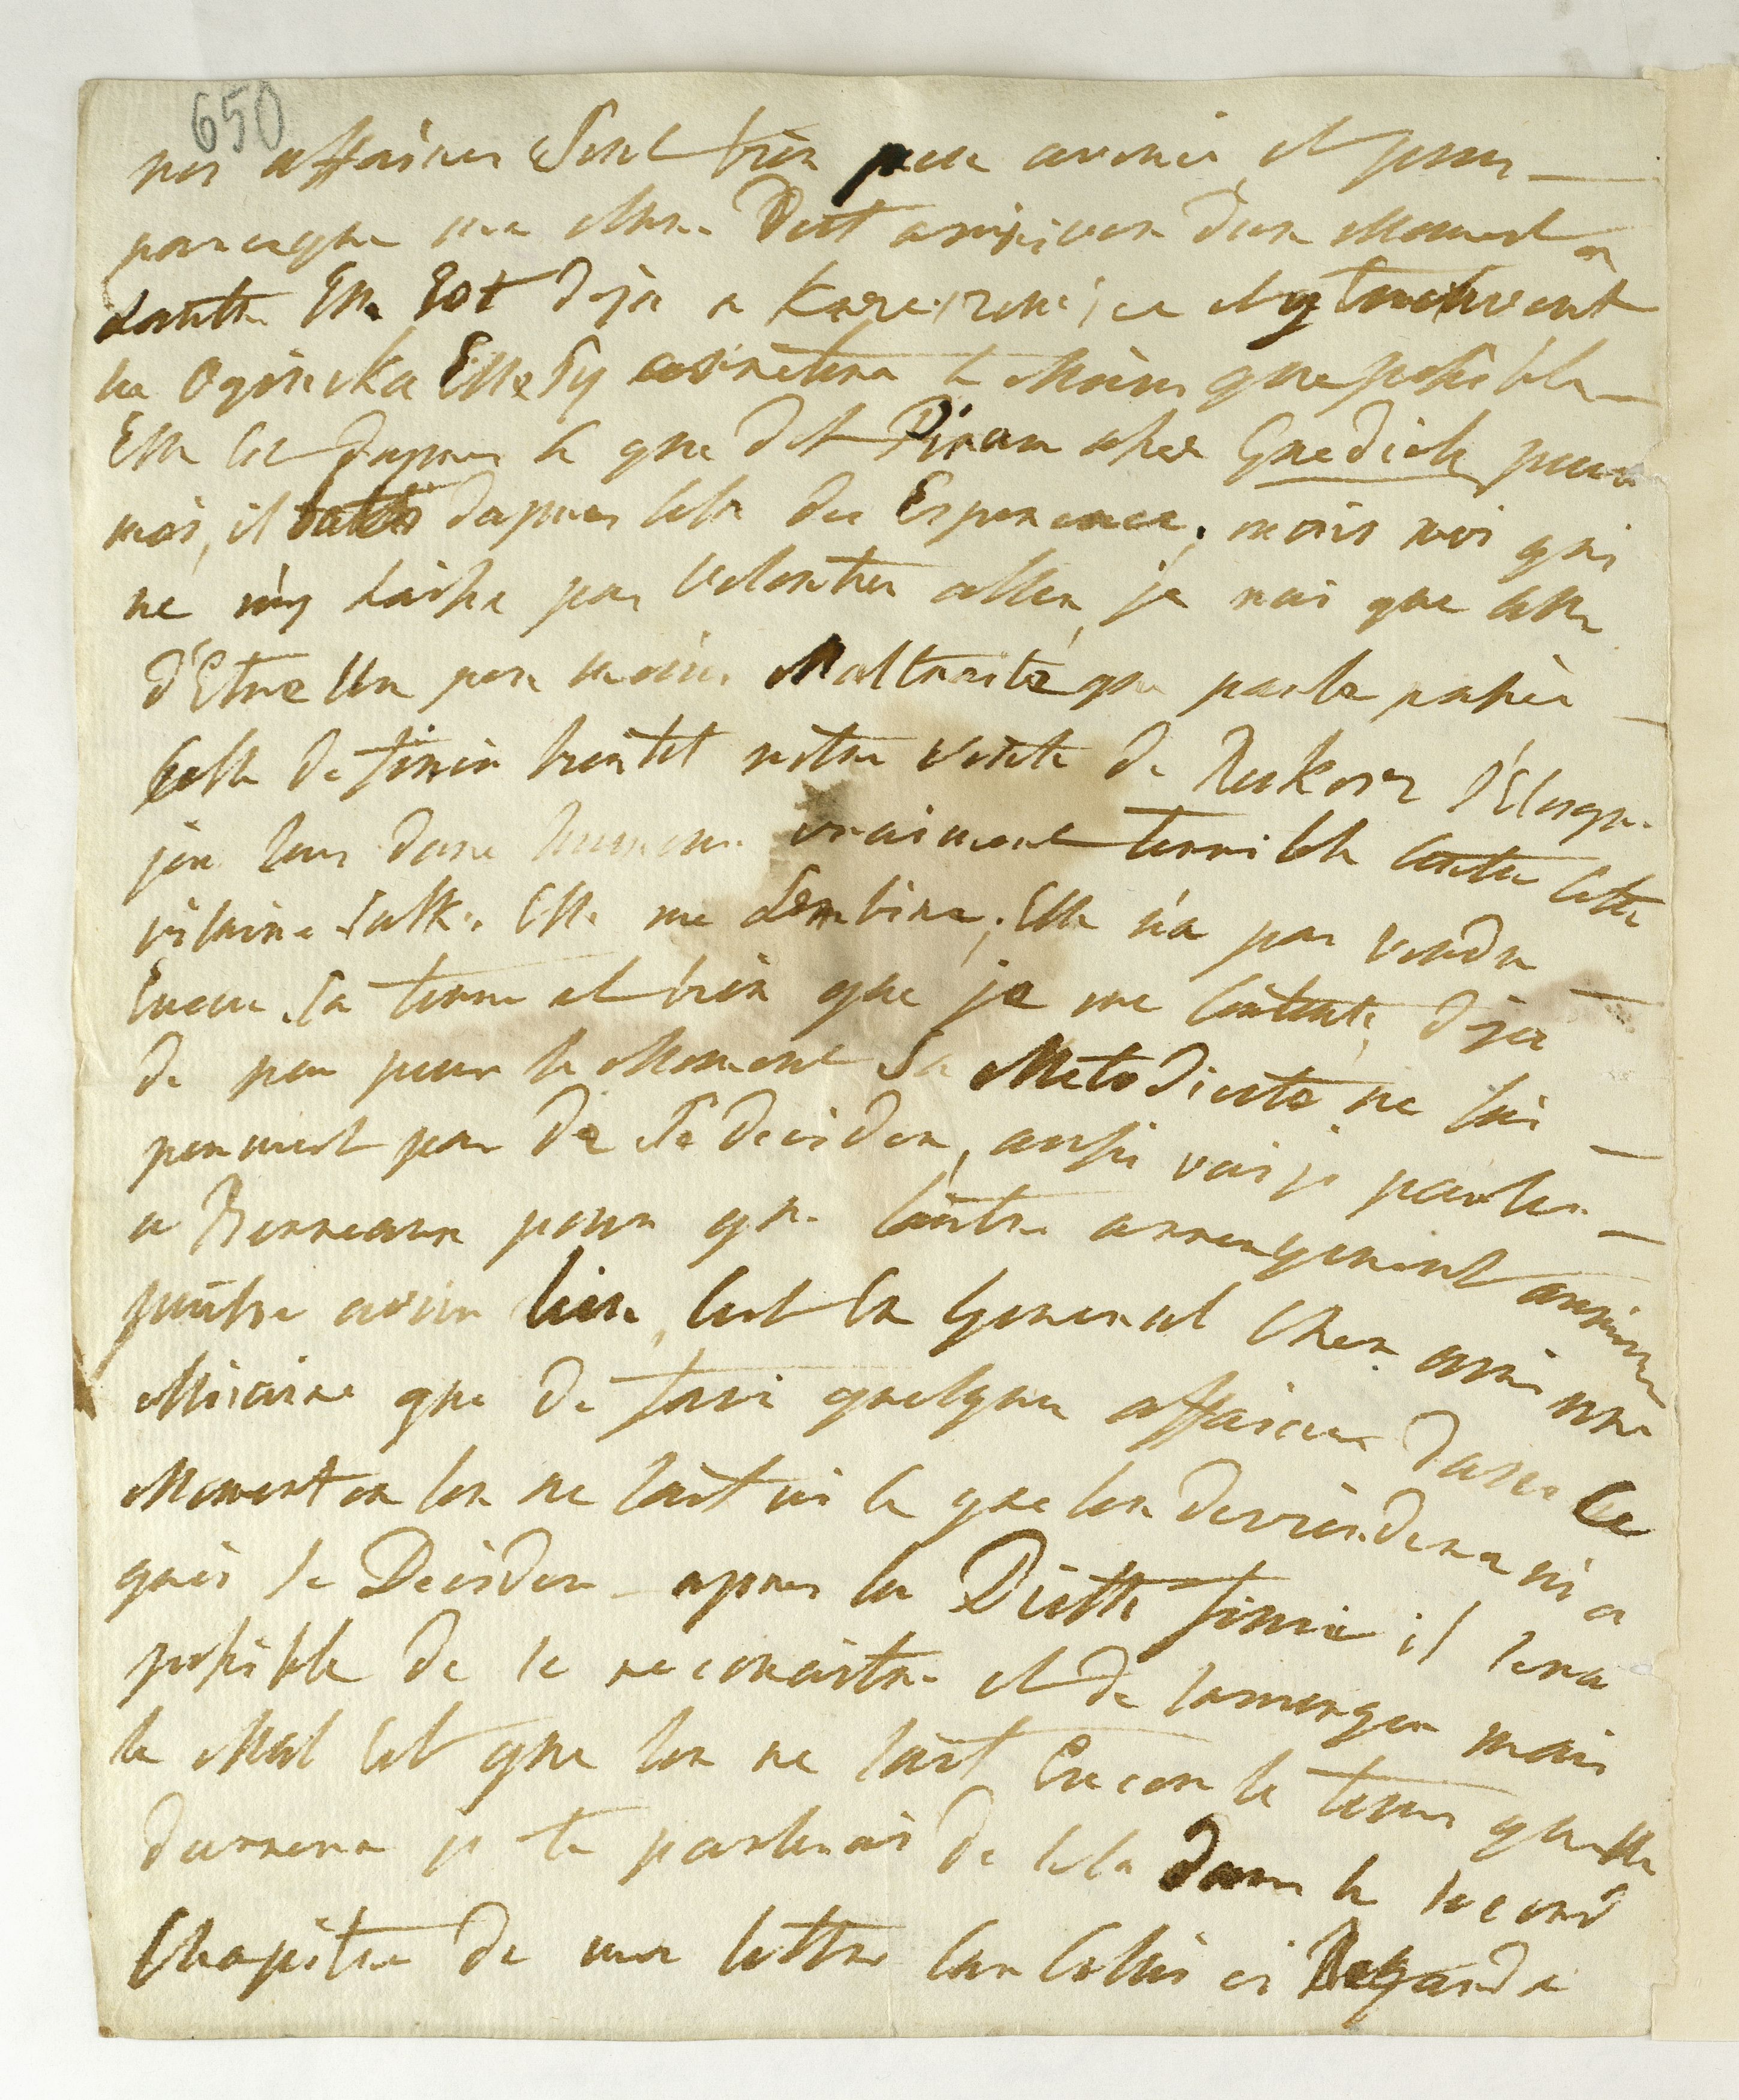 650
nos affaires Sont bien peu avencé et pour
parceque ma Mere Doit arriver dun Moment a
Lautre Elle Est deja a et y
la Oginska Elle Sy arretera le Moins que possible
Elle Est dapres ce que dit Piram chez pour
moi, il dapres cela des Esperance, mais moi qui
ne m'y laisse pas volontier aller, je nai que celle
d'Etre Un peu moins Maltraité que par le passée
Celle de finir bientot notre vente de Rukosz s'Eloigne
jen suis dune humeur vraiment terrible contre cette
vilaine Elle me Lembine, Elle n'a pas vendu
Encore sa terre et bien que je me contente deja
de peu pour le Moment Sa Metodicité ne lui
permest pas de Se decider, aussi vais je parler
a pour que lautre arrengement
puisse avoir lieu, cest en General cher ami une
Misaire que de faire quelques affaires dans ce
Moment ou lon ne sait ni ce que lon deviendera ni a
quoi se Decider apres la Diette finie il sera
possible de se reconaitre et de sarrenger mais
le Mal est que lon ne sait Encore le tems quelle
durrera je te parlerais de cela dans le second
Chapitre de ma lettre car celui ci Regarde